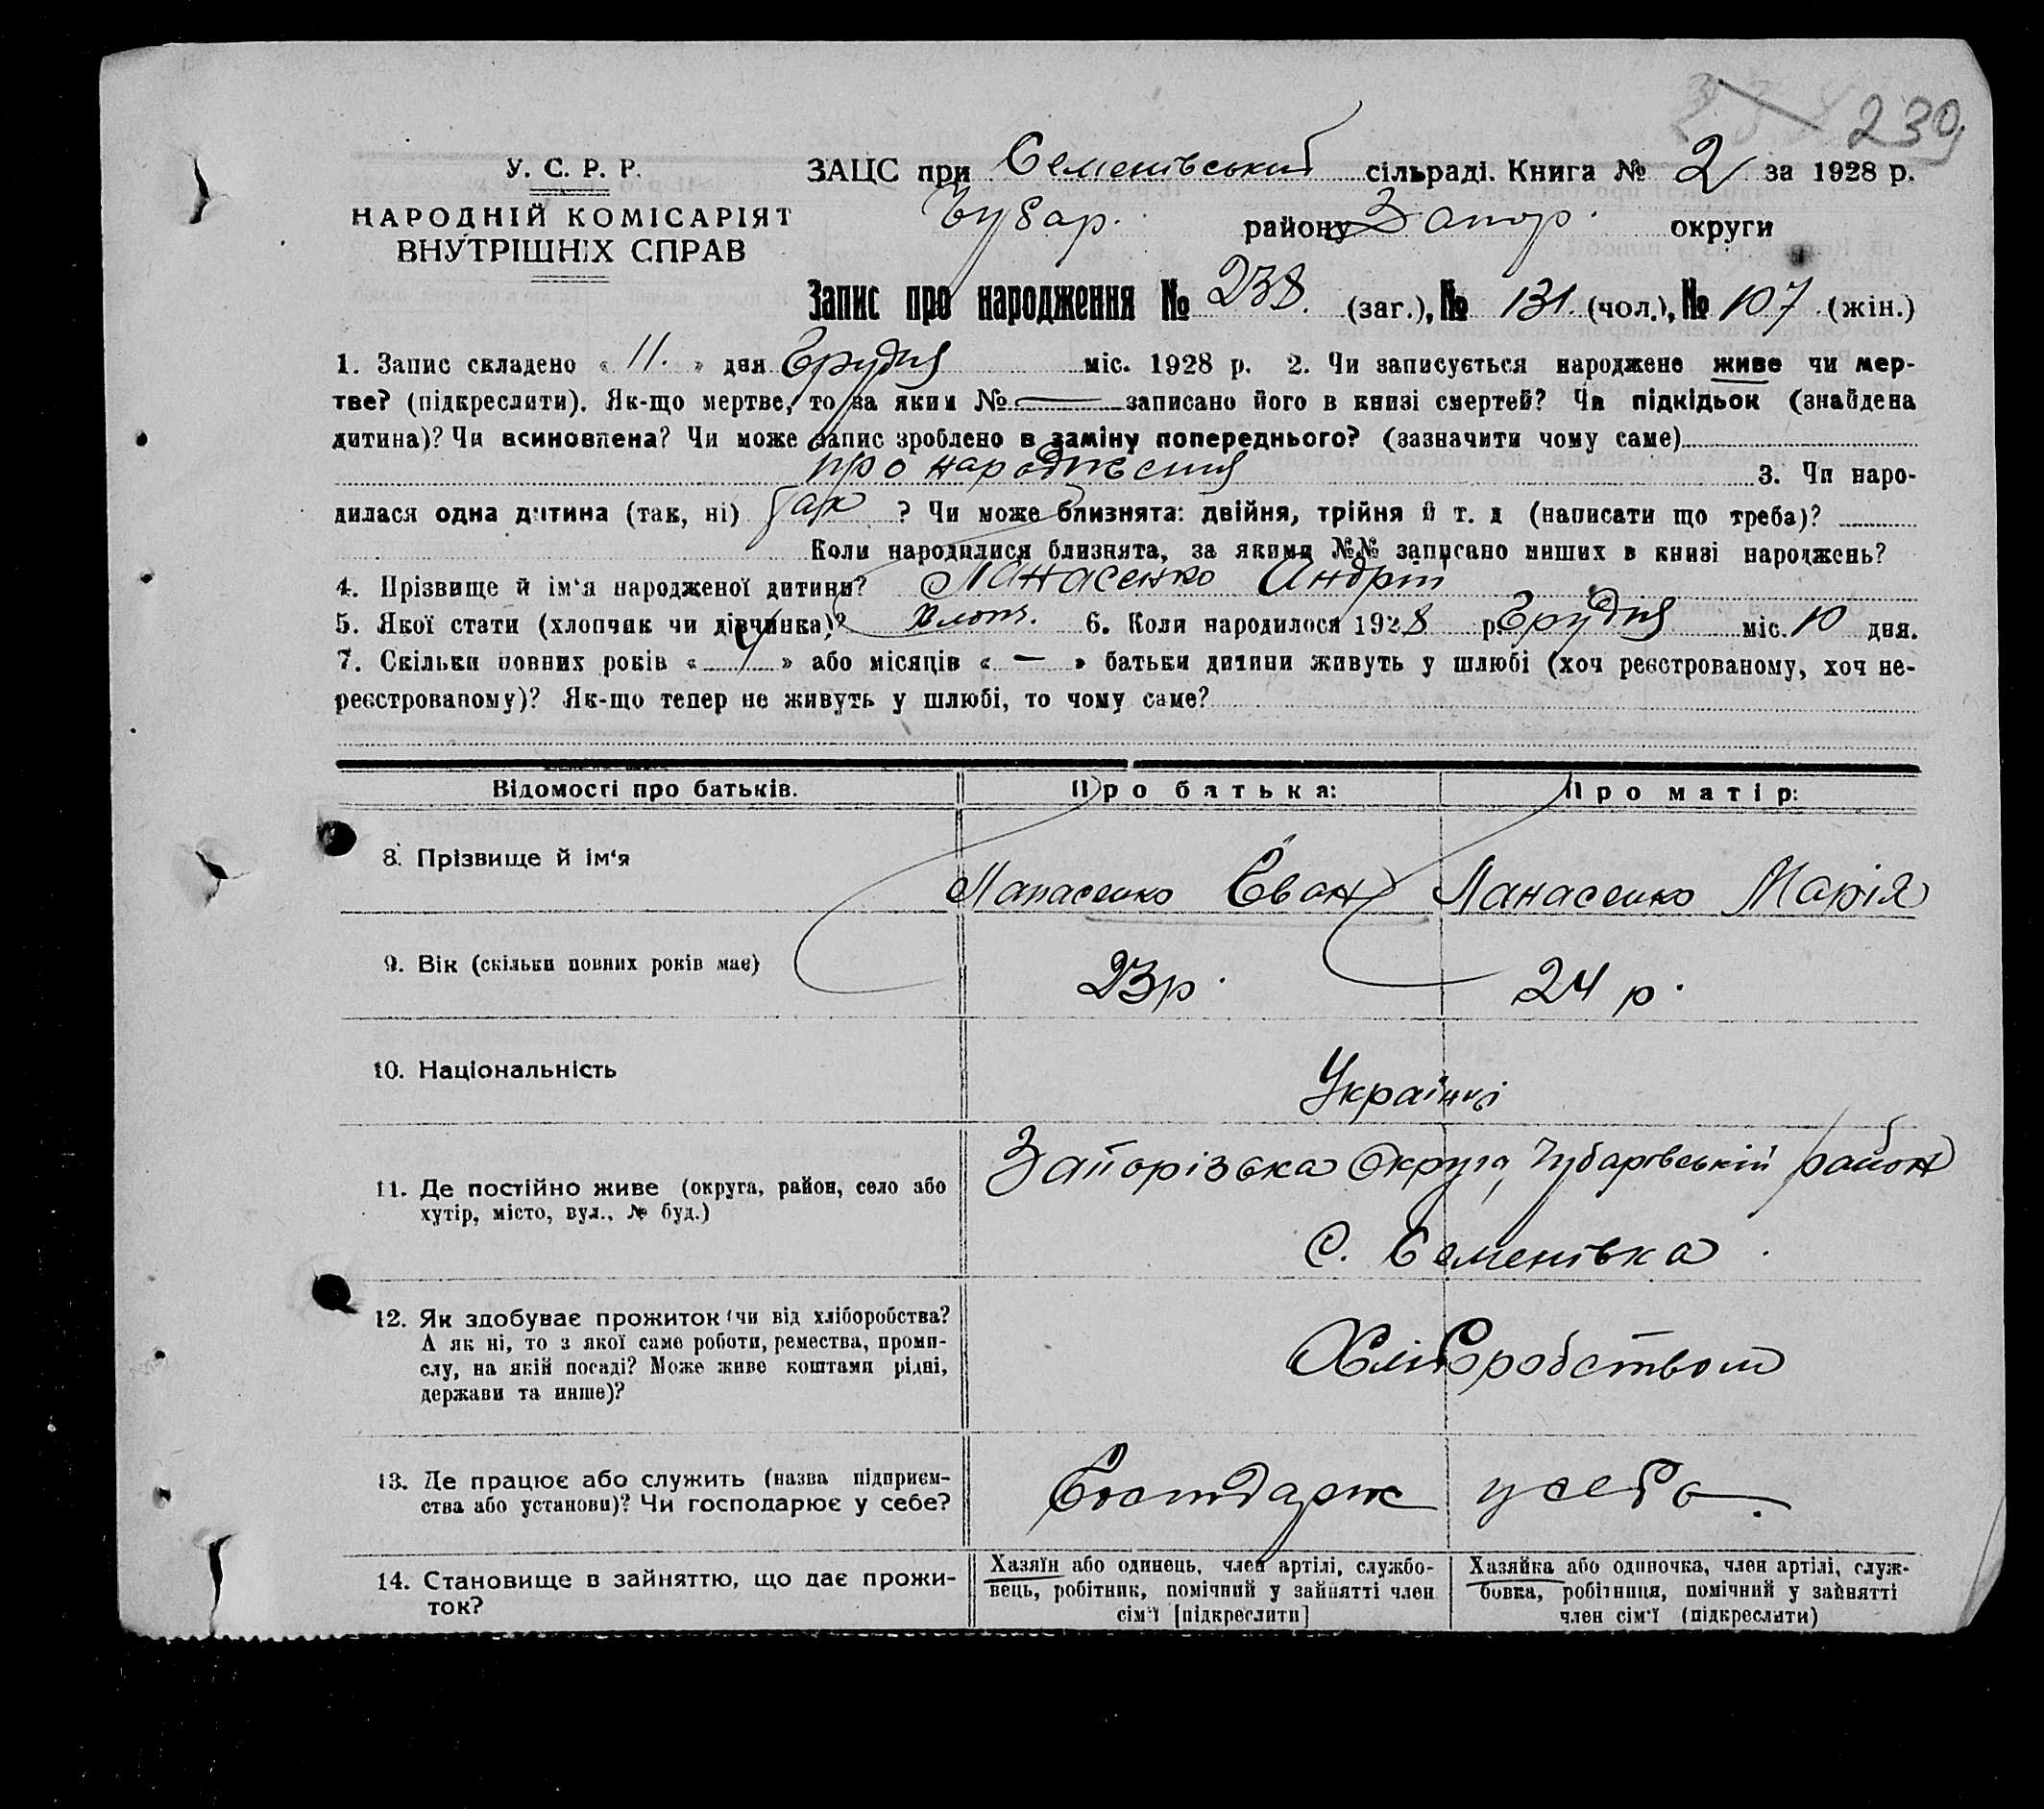 239
У. С. Р. Р.
НАРОДНІЙ КОМІСАРІЯТ
ВНУТРІШНІХ СПРАВ
ЗАЦС при Семенівський сільраді. Книга № 2 за 1928 р.
Чубар. району Запор. округи
Запис про народження № 238. (заг.), № 131. (чол.), № 107 (жін.)
1. Запис складено « 11. » дня Грудня міс. 1928 р. 2. Чи записується народжене живе чи мер-
тве? (підкреслити). Як-що мертве, то за яким № — записано його в книзі смертей? Чи підкідьок (знайдена
дитина)? Чи всиновлена? Чи може запис зроблено в заміну попереднього? (зазначити чому саме)
про народження 3. Чи наро-
дилася одна дитина (так, ні) так ? Чи може близнята: двійня, трійня й т. д (написати що треба)?
Коли народилися близнята, за якими №№ записано инших в книзі народжень?
4. Прізвище й ім'я народженої дитини? Панасенко Андрій
5. Якої стати (хлопчик чи дівчинка)? Хлопч. 6. Коли народилося 1928 р. Грудня міс. 10 дня.
7. Скільки повних років « 4 » або місяців « — » батьки дитини живуть у шлюбі (хоч реєстрованому, хоч не-
реєстрованому)? Як-що тепер не живуть у шлюбі, то чому саме?
Відомості про батьків. Про батька: Про матір:
8. Прізвище й ім'я Панасенко Єван Панасенко Марія
9. Вік (скільки повних років має) 23 р. 24 р.
10. Національність Українці
11. Де постійно живе (округа, район, село або
хутір, місто, вул., № буд.)
Запорізька Округа, Чубарівській район
С. Семенівка.
12. Як здобуває прожиток (чи від хліборобства?
А як ні, то з якої саме роботи, ремества, проми-
слу, на якій посаді? Може живе коштами рідні,
держави та инше)?
Хліборобством
13. Де працює або служить (назва підприєм-
ства або установи)? Чи господарює у себе?
Господарж у себе.
14. Становище в зайняттю, що дає прожи-
ток?
Хазяїн або одинець, член артілі, службо-
вець, робітник, помічний у зайнятті член
сім'ї [підкреслити]
Хазяйка або одиночка, член артілі, служ-
бовка, робітниця, помічний у зайнятті
член сім'ї (підкреслити)